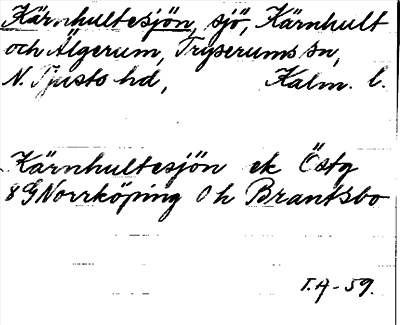 Kärnhultesjön, sjö, Kärnhult
och Älgerum, Tryserums sn,
N. Tjusts hd, Kalm. l.
Kärnhultesjön ek Östg
8 G Norrköping 0 h Brantsbo
T.A-59.